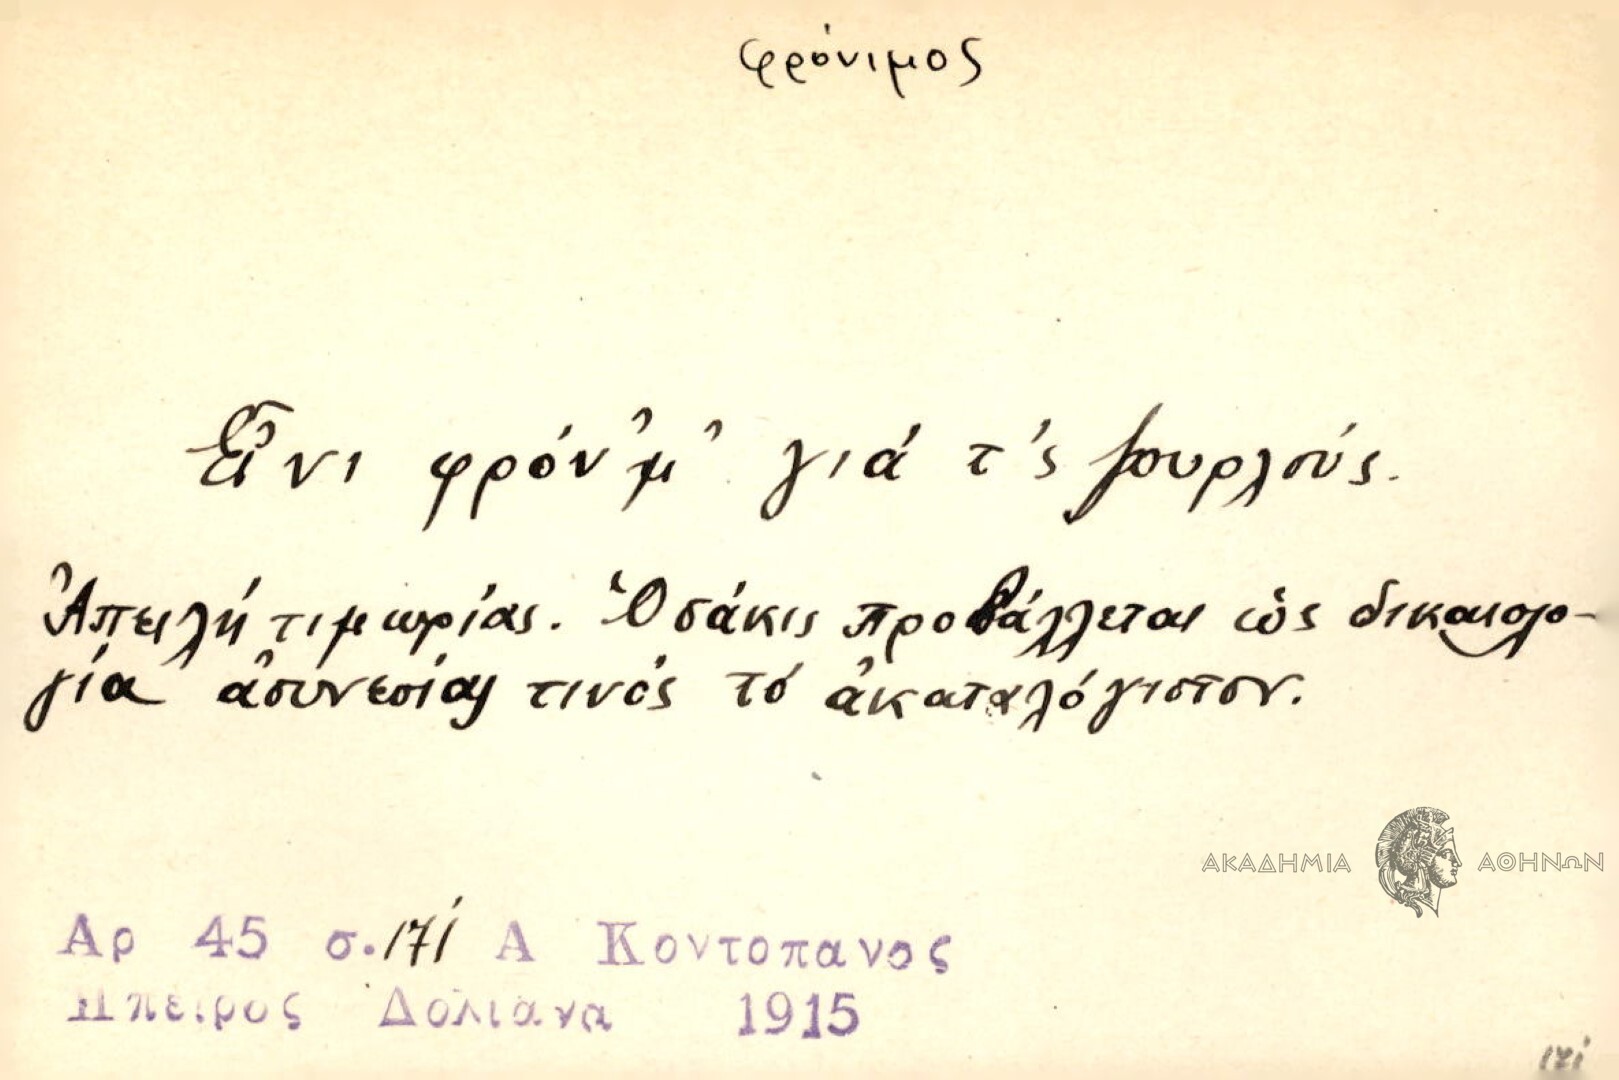 φρόνιμος
Εἶνι φρόν'μ' γιά τ'ς ζουρλούς.
Ἀπειλή τιμωρίας. Ὁσάκις προβάλλεται ὡς δικαιολο-
γία ἀσυνεσίας τινός τό ἀκαταλόγιστον.
ΑΚΑΔΗΜΙΑ ΑΘΗΝΩΝ
Αρ 45 σ. 171 Α Κοντοπανος
Ηπειρος Δολιανα 1915
171